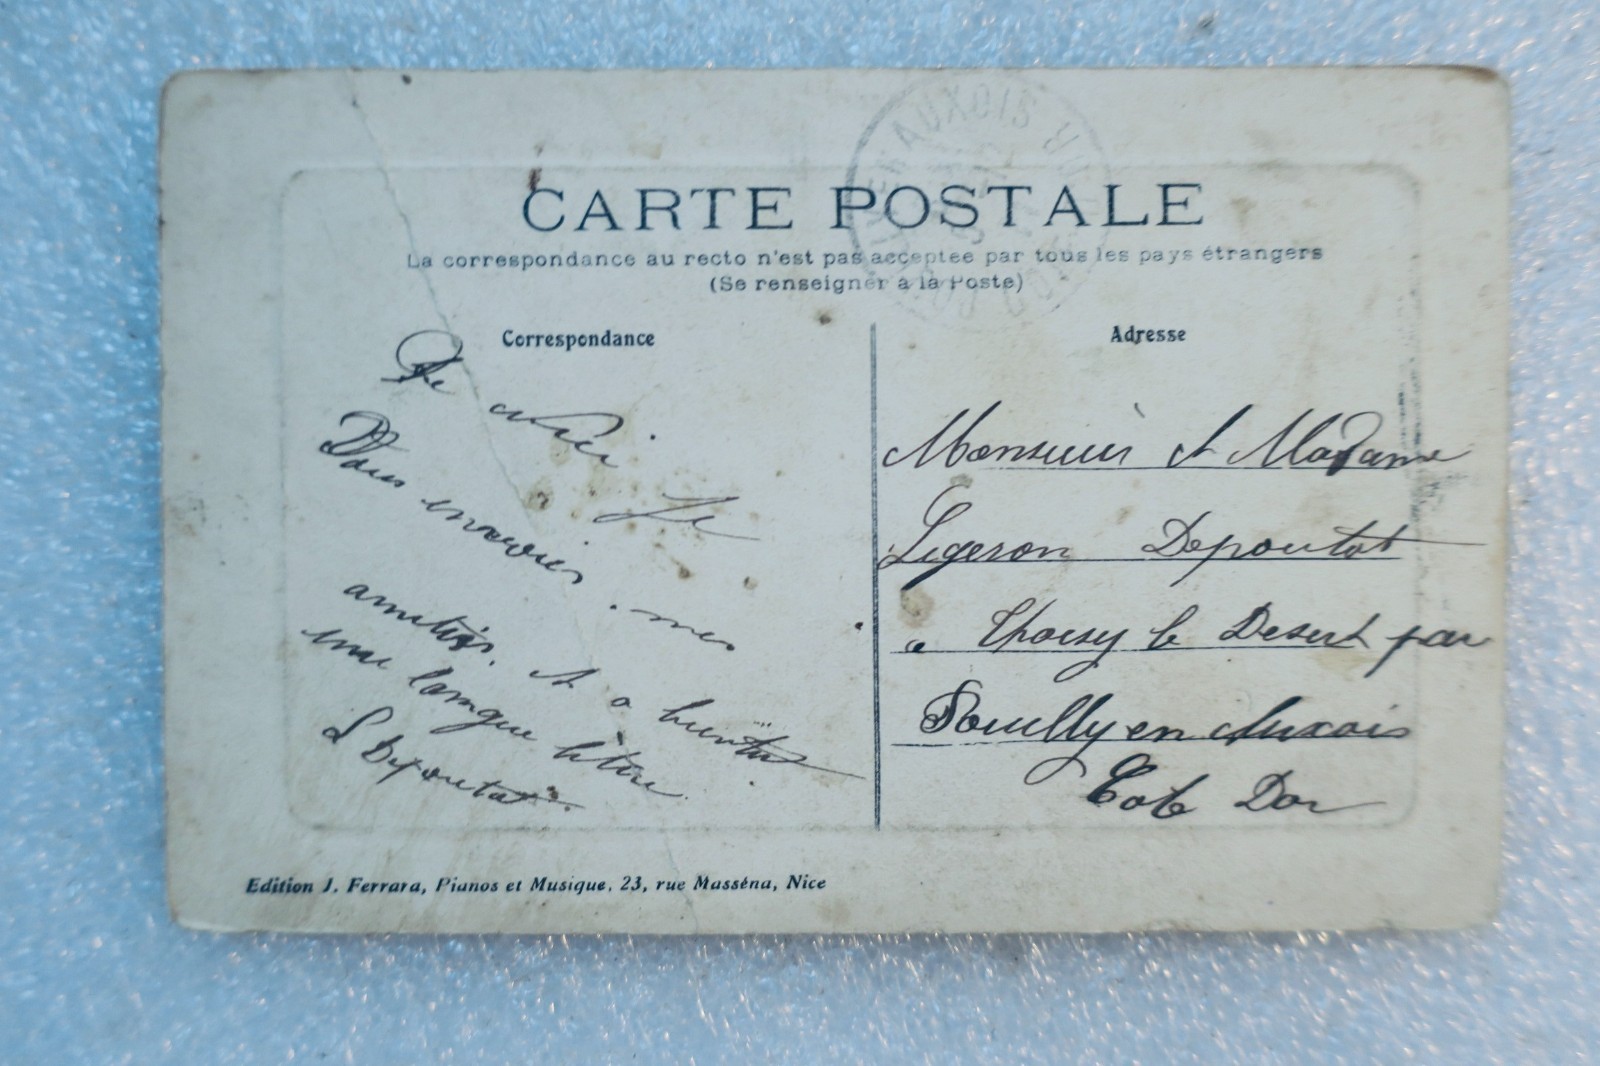 CARTE POSTALE
La correspondance au recto n'est pas acceptée par tous les pays étrangers
(Se renseigner à la Poste)
Correspondance
De Nice Je
Vous envoies mes
amitiés. et a bientot
une longue letre
L Depoutot
Adresse
Monsieur et Madame
Ligeron Depoutot
a Thoisy le Desert par
Pouilly en Auxois
Cote Dor
Edition J. Ferrara, Pianos et Musique, 23, rue Masséna, Nice